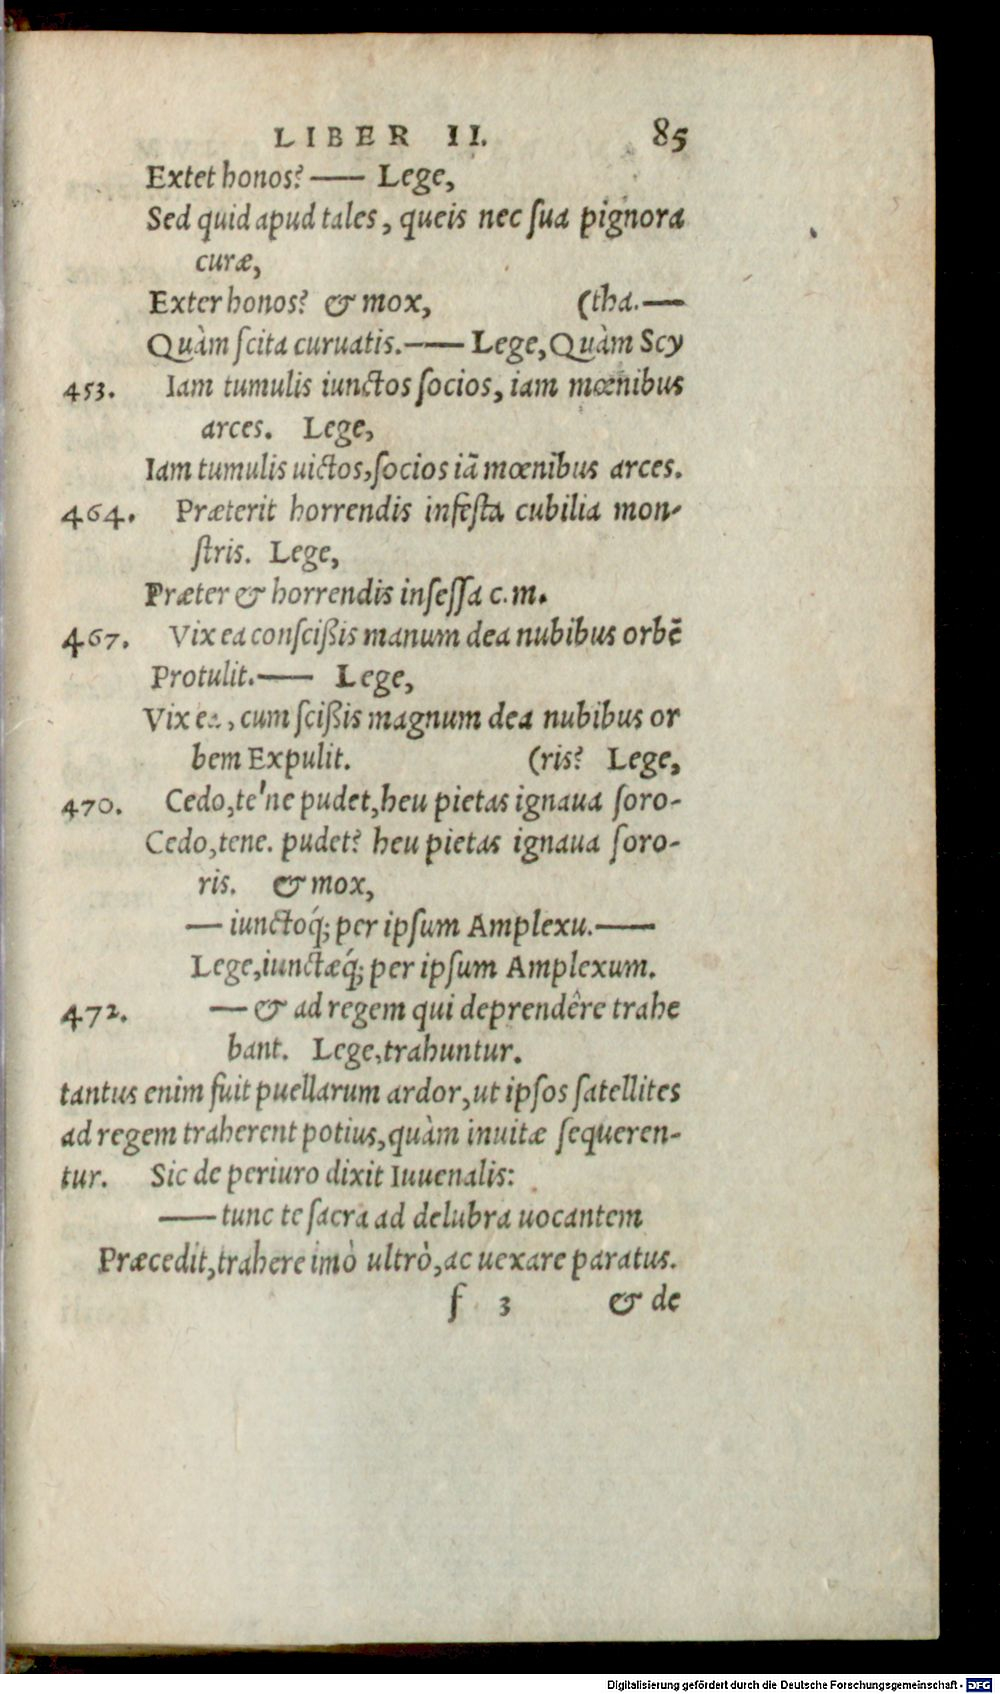 LIBER II. 85
Extet honos? — Lege,
Sed quid apud tales, queis nec sua pignora
curæ,
Exter honos? & mox, (tha.—
Quàm scita curuatis.— Lege, Quàm Scy
453. Iam tumulis iunctos socios, iam mœnibus
arces. Lege,
Iam tumulis uictos, socios iã mœnibus arces.
464. Præterit horrendis infesta cubilia mon-
stris. Lege,
Præter & horrendis insessa c. m.
467. Vix ea conscißis manum dea nubibus orbẽ
Protulit.— Lege,
Vix e, cum scißis magnum dea nubibus or
bem Expulit. (ris? Lege,
470. Cedo, te'ne pudet, heu pietas ignaua soro-
Cedo, tene. pudet? heu pietas ignaua soro-
ris. & mox,
— iunctoq́; per ipsum Amplexu.—
Lege, iunctæq́; per ipsum Amplexum.
472. — & ad regem qui deprendêre trahe
bant. Lege, trahuntur.
tantus enim fuit puellarum ardor, ut ipsos satellites
ad regem traherent potius, quàm inuitæ sequeren-
tur. Sic de periuro dixit Iuuenalis:
— tunc te sacra ad delubra uocantem
Præcedit, trahere imò ultrò, ac uexare paratus.
f 3 & de
Digitalisierung gefördert durch die Deutsche Forschungsgemeinschaft - DFG